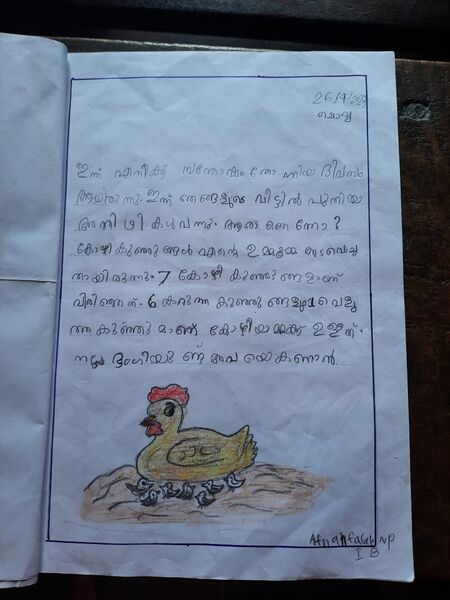 26/9/2023
ചൊവ്വ
ഇന്ന് എനിക്ക് സന്തോഷം തോന്നിയ ദിവസം
ആയിരുന്നു. ഇന്ന് ഞങ്ങളുടെ വീട്ടിൽ പുതിയ
അതിഥികൾ വന്നു. ആരാണെന്നോ?
കോഴികുഞ്ഞുങ്ങൾ എന്റെ ഉമ്മൂമ്മ അടവെച്ച
തായിരുന്നു. 7 കോഴി കുഞ്ഞുങ്ങളാണ്
വിരിഞ്ഞത്. 6 കറുത്ത കുഞ്ഞുങ്ങളും 1 വെളു
ത്ത കുഞ്ഞുമാണ് കോഴിയമ്മക്ക് ഉള്ളത്.
നല്ല ഭംഗിയുണ്ട് അവയെകാണാൻ.
I B